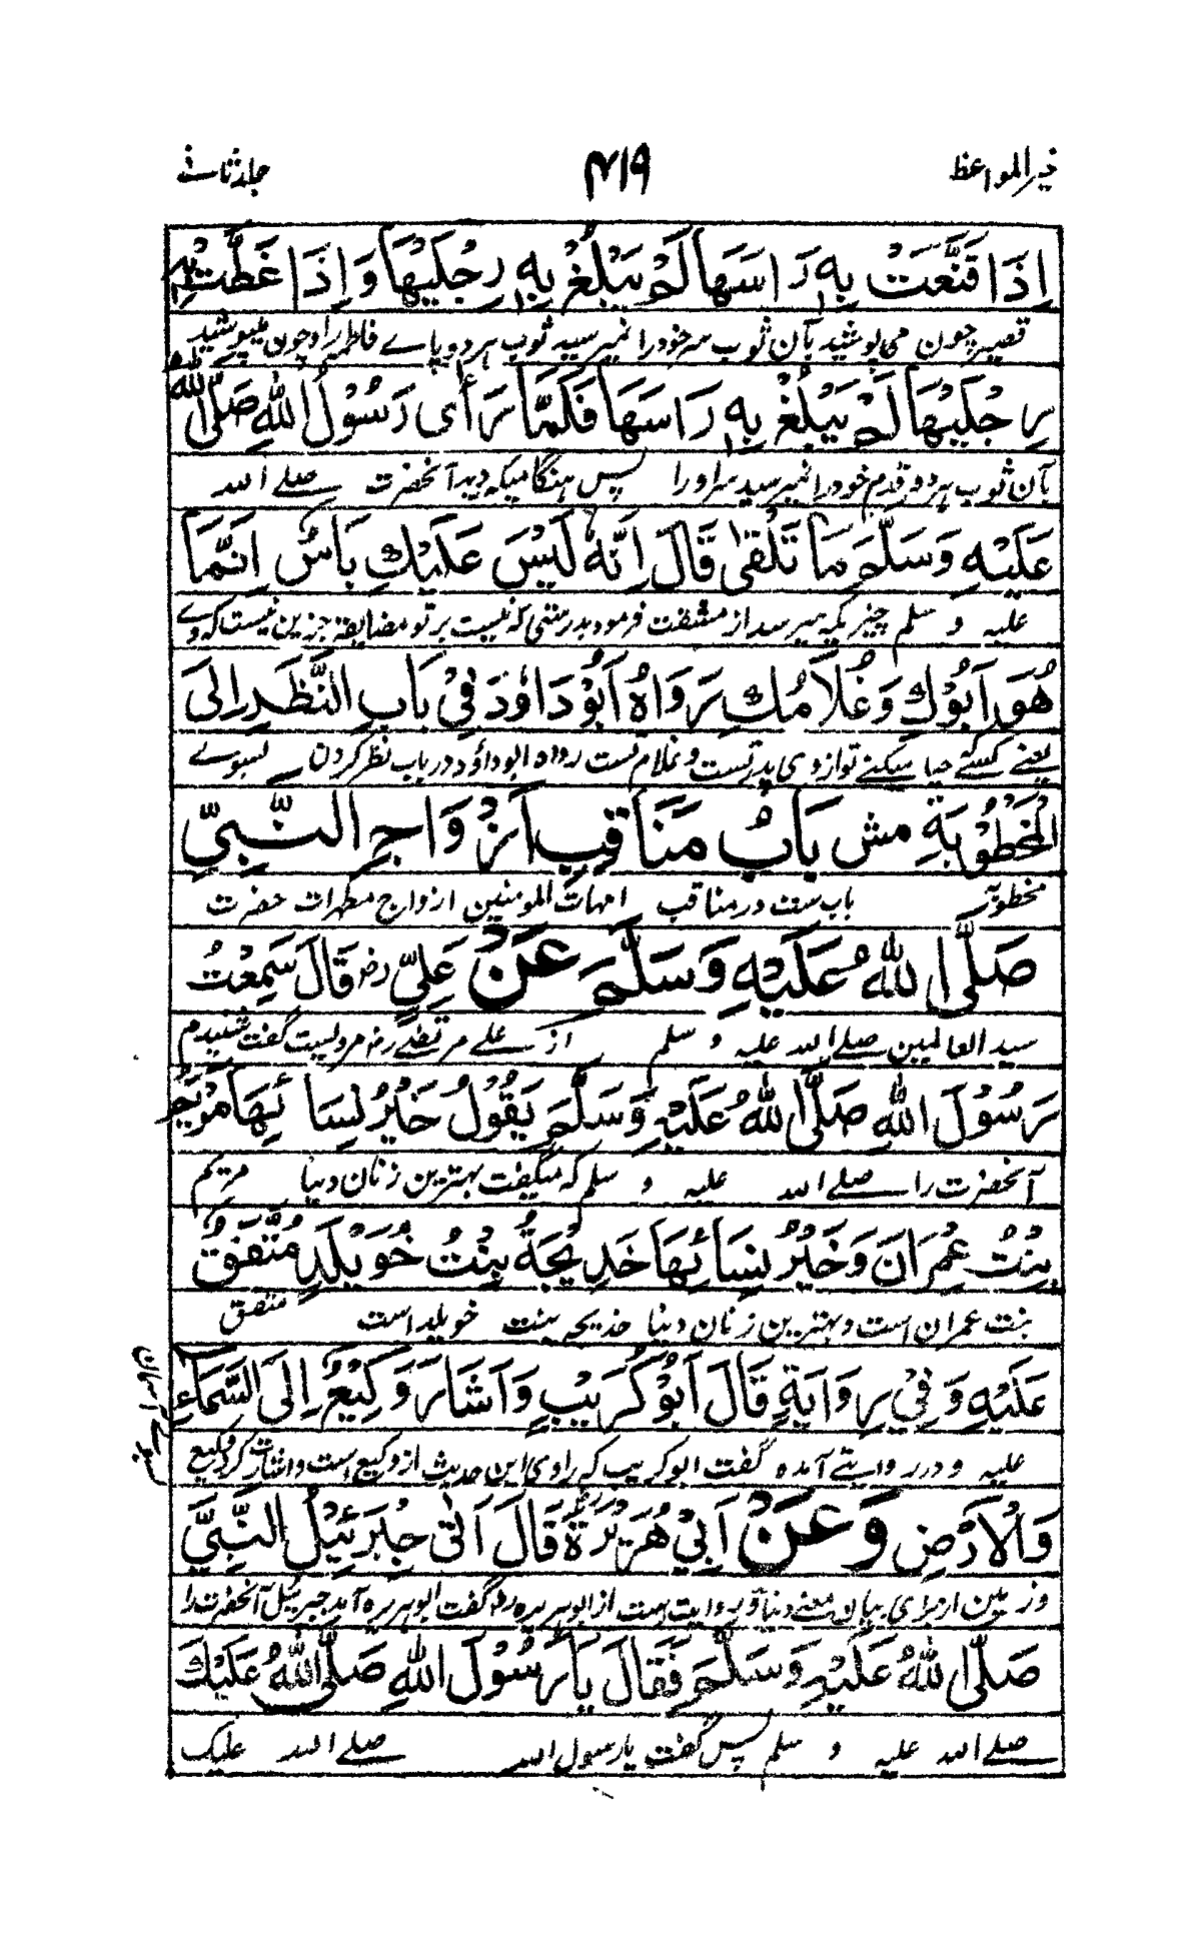 خیر المواعظ ۴۱۹ جلد ثانی
اِذَا قَنَّعَتْ بِهٖ رَاسَهَا لَمْ يَبْلُغْ بِهٖ رِجْلَيْهَا وَاِذَا غَطَّتْ بِهٖ
قصیر چون می پوشید بآن ثوب سر خود را نمیرسید ثوب هر دو پاے فاطمه را و چون میپوشید
رِجْلَيْهَا لَمْ يَبْلُغْ بِهٖ رَاسَهَا فَلَمَّا رَأٰى رَسُوْلُ اللهِ صَلَّى اللهُ
بآن ثوب هر دو قدم خود را نمیرسید سر او را پس هنگامیکه دید آنحضرت صلے الله
عَلَيْهِ وَسَلَّمَ مَا تَلْقٰى قَالَ اِنَّهٗ لَيْسَ عَلَيْكِ بَاسٌ اِنَّمَا
علیه و سلم چیزیکه میرسد از مشقت فرمود بدرستی که نیست بر تو مضایقه جزین نیست که وے
هُوَ اَبُوْكِ وَغُلَامُكِ رَوَاهُ اَبُوْ دَاوٗدَ فِيْ بَابِ النَّظَرِ اِلَى
یعنے کسیکه حیا میکنے تو از وی پدر تست و غلام تست رواه ابو داؤد در باب نظر کردن بسوے
الْمَخْطُوْبَةِ مش بَابُ مَنَاقِبِ اَزْوَاجِ النَّبِيِّ
مخطوبه باب ست در مناقب امهات المومنین ازواج مطهرات حضرت
صَلَّى اللهُ عَلَيْهِ وَسَلَّمَ عَنْ عَلِيٍّ رض قَالَ سَمِعْتُ
سید العالمین صلے الله علیه و سلم از علے مرتضے رض مرویست گفت شنیدم
رَسُوْلَ اللهِ صَلَّى اللهُ عَلَيْهِ وَسَلَّمَ يَقُوْلُ خَيْرُ نِسَائِهَا مَرْيَمُ
آنحضرت را صلے الله علیه و سلم که میگفت بهترین زنان دنیا مریم
بِنْتُ عِمْرَانَ وَخَيْرُ نِسَائِهَا خَدِيْجَةُ بِنْتُ خُوَيْلَدٍ مُتَّفَقٌ
بنت عمران است و بهترین زنان دنیا خدیجه بنت خویلد است متفق
عَلَيْهِ وَفِيْ رِوَايَةٍ قَالَ اَبُوْ كُرَيْبٍ وَاَشَارَ وَكِيْعٌ اِلَى السَّمَاءِ
علیه و در روایتے آمده گفت ابو کریب که راوی این حدیث از وکیع است و اشارت کرد وکیع بسوے آسمان
وَالْاَرْضِ وَعَنْ اَبِيْ هُرَيْرَةَ رض قَالَ اَتٰى جِبْرَئِيْلُ النَّبِيَّ
و زمین از برای بیان معنے دنیا و روایت است از ابو هریره رض گفت ابو هریره آمد جبرئیل آنحضرت را
صَلَّى اللهُ عَلَيْهِ وَسَلَّمَ فَقَالَ يَا رَسُوْلَ اللهِ صَلَّى اللهُ عَلَيْكَ
صلے الله علیه و سلم پس گفت یا رسول الله صلے الله علیک